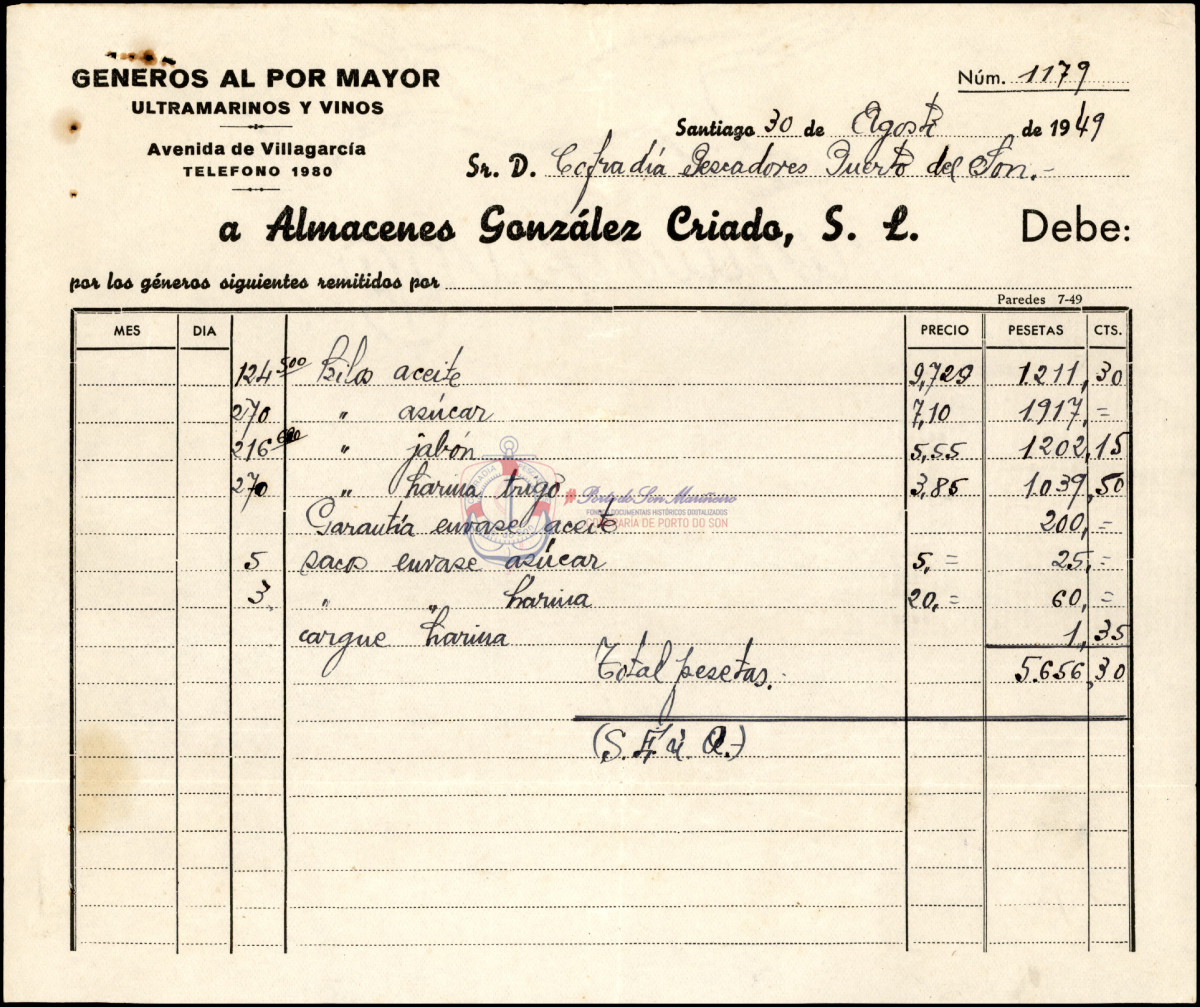 GENEROS AL POR MAYOR
ULTRAMARINOS Y VINOS
Avenida de Villagarcía
TELEFONO 1980
Núm. 1179
Santiago 30 de Agosto de 1949
Sr. D. Cofradía Pescadores Puerto del Son.-
a Almacenes González Criado, S. L. Debe:
por los géneros siguientes remitidos por
Paredes 7-49
MES DIA PRECIO PESETAS CTS.
124 500 Kilos aceite 9,729 1.211,30
270 " azúcar 7,10 1.917,=
216 600 " jabón 5,55 1.202,15
270 " harina trigo 3,85 1.039,50
Garantía envase aceite 200,=
5 sacos envase azúcar 5,= 25,=
3 " " harina 20,= 60,=
cargue harina 1,35
Total pesetas.- 5.656,30
(S. E. ú. O.-)
COFRADÍA PESCADORES
Porto do Son Mariñeiro
FONDOS DOCUMENTAIS HISTÓRICOS DIXITALIZADOS
CONFRARIA DE PORTO DO SON